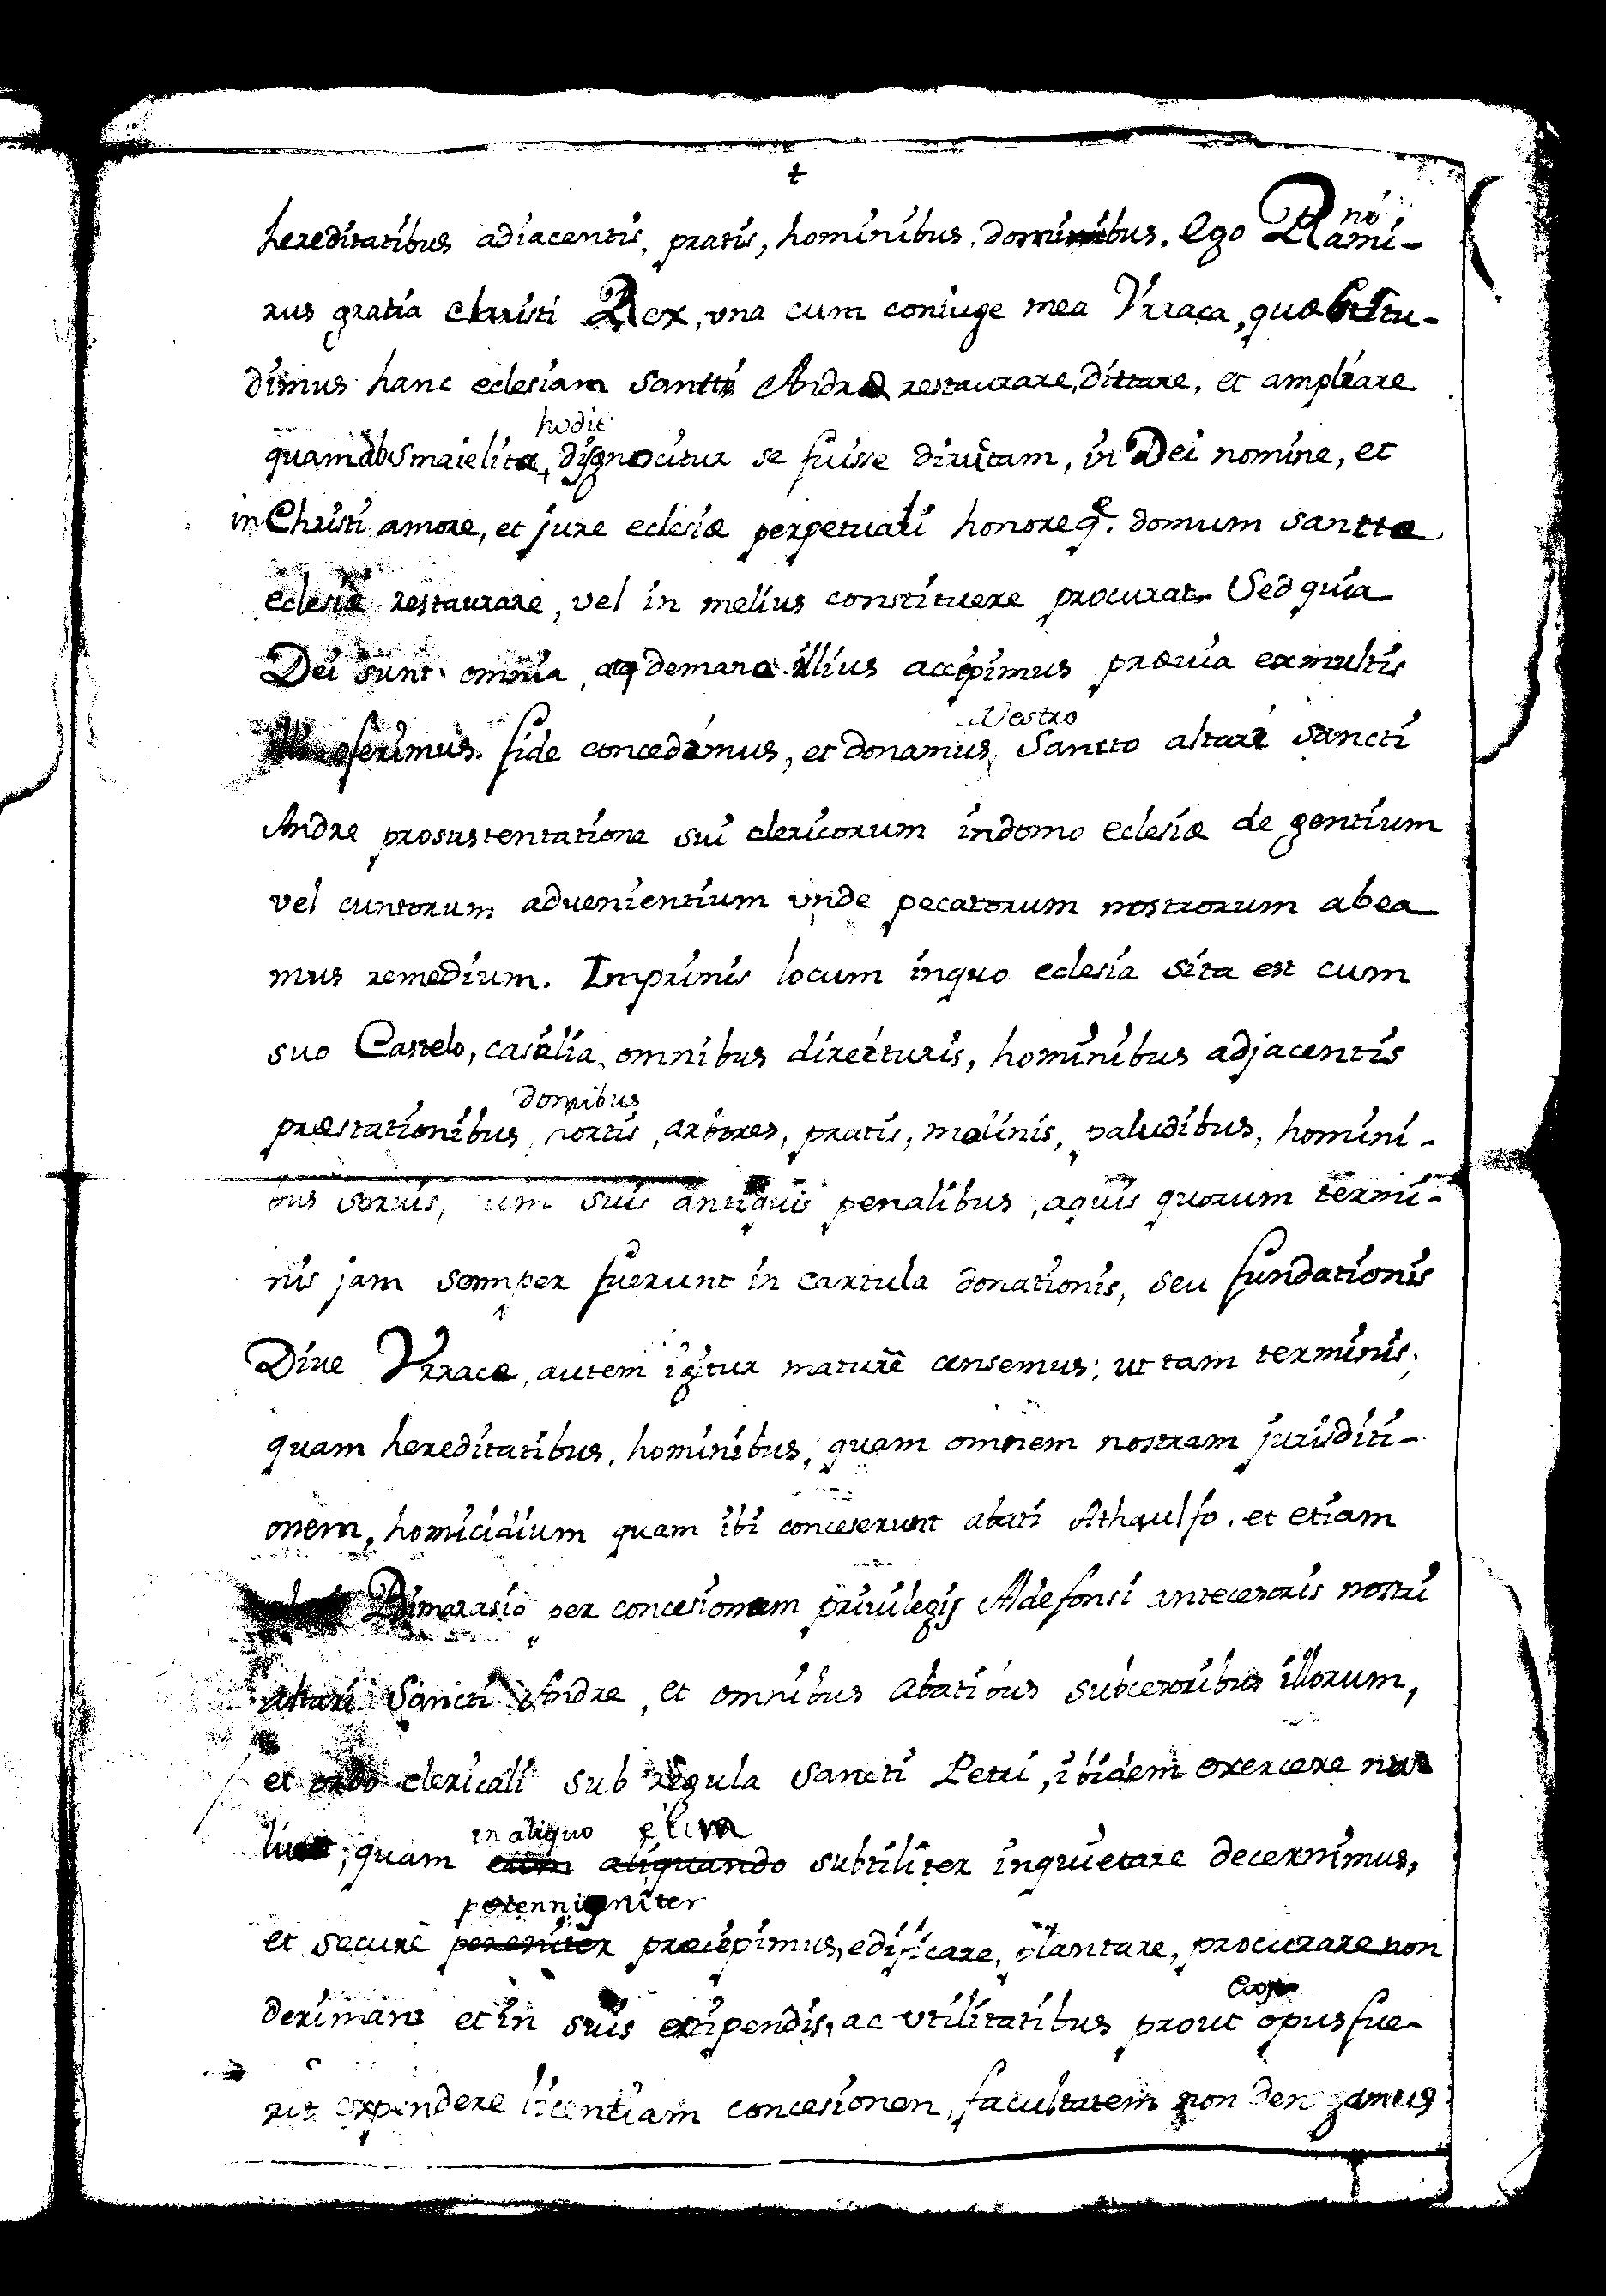 t
hereditatibus adiacentis, pratis, hominibus, dominibus. Ego Rami-
rus gratia Christi Rex, vna cum coniuge mea Vrraca, quæ
dimus hanc eclesiam Santti Andræ restaurare, dittare, et ampliare
hodie
quam abSmaielitæ, disgnocitur se fuisse dirutam, in Dei nomine, et
in Christi amore, et jure eclesiæ perpetuali honoreq̃. domum santtæ
eclesiæ restaurare, vel in melius constituere procurat Sed quia
Dei sunt omnia, atq demano illius accipimus præuia exmultis
oferimus. fide concedimus, et donamus, Santto altari sancti
Vestro
Andre prosustentatione sui clericorum indomo eclesiæ de gentium
vel cuntorum aduenientium vnde pecatorum nostrorum abea
mus remedium. Imprimis locum inquo eclesia sita est cum
suo Castelo, casalia, omnibus direituris, hominibus adjacentis
domibus
præstationibus, ortis, arbores, pratis, molinis, paludibus, homini-
bus seruis, um suis antiquis penalibus, aquis quorum termi-
nis jam semper fuerunt in cartula donationis, seu fundationis
Dive Vrrace, autem igitur maturè censemus; ut tam terminis,
quam hereditatibus, hominibus, quam omnem nostram jurisditi-
onem, homicidium quam ibi conceserunt abati Athaulfo, et etiam
Dimarasio per concesionem priuilegij Aldefonsi antecesoris nostri
altari Sancti Andre, et omnibus abatibus subcesoribus illorum,
et ordo clericali sub regula Sancti Petri, ibidem exercere
in aliquo
quam eum aliquando subtiliter inquietare decernimus,
perenniqniter
et securè pereniter præcipimus, edificare, plantare, procurare non
derimant et in suis extipendis, ac vtilitatibus prout opus fue-
rit expendere licentiam concesionen, facultatem non denegamus